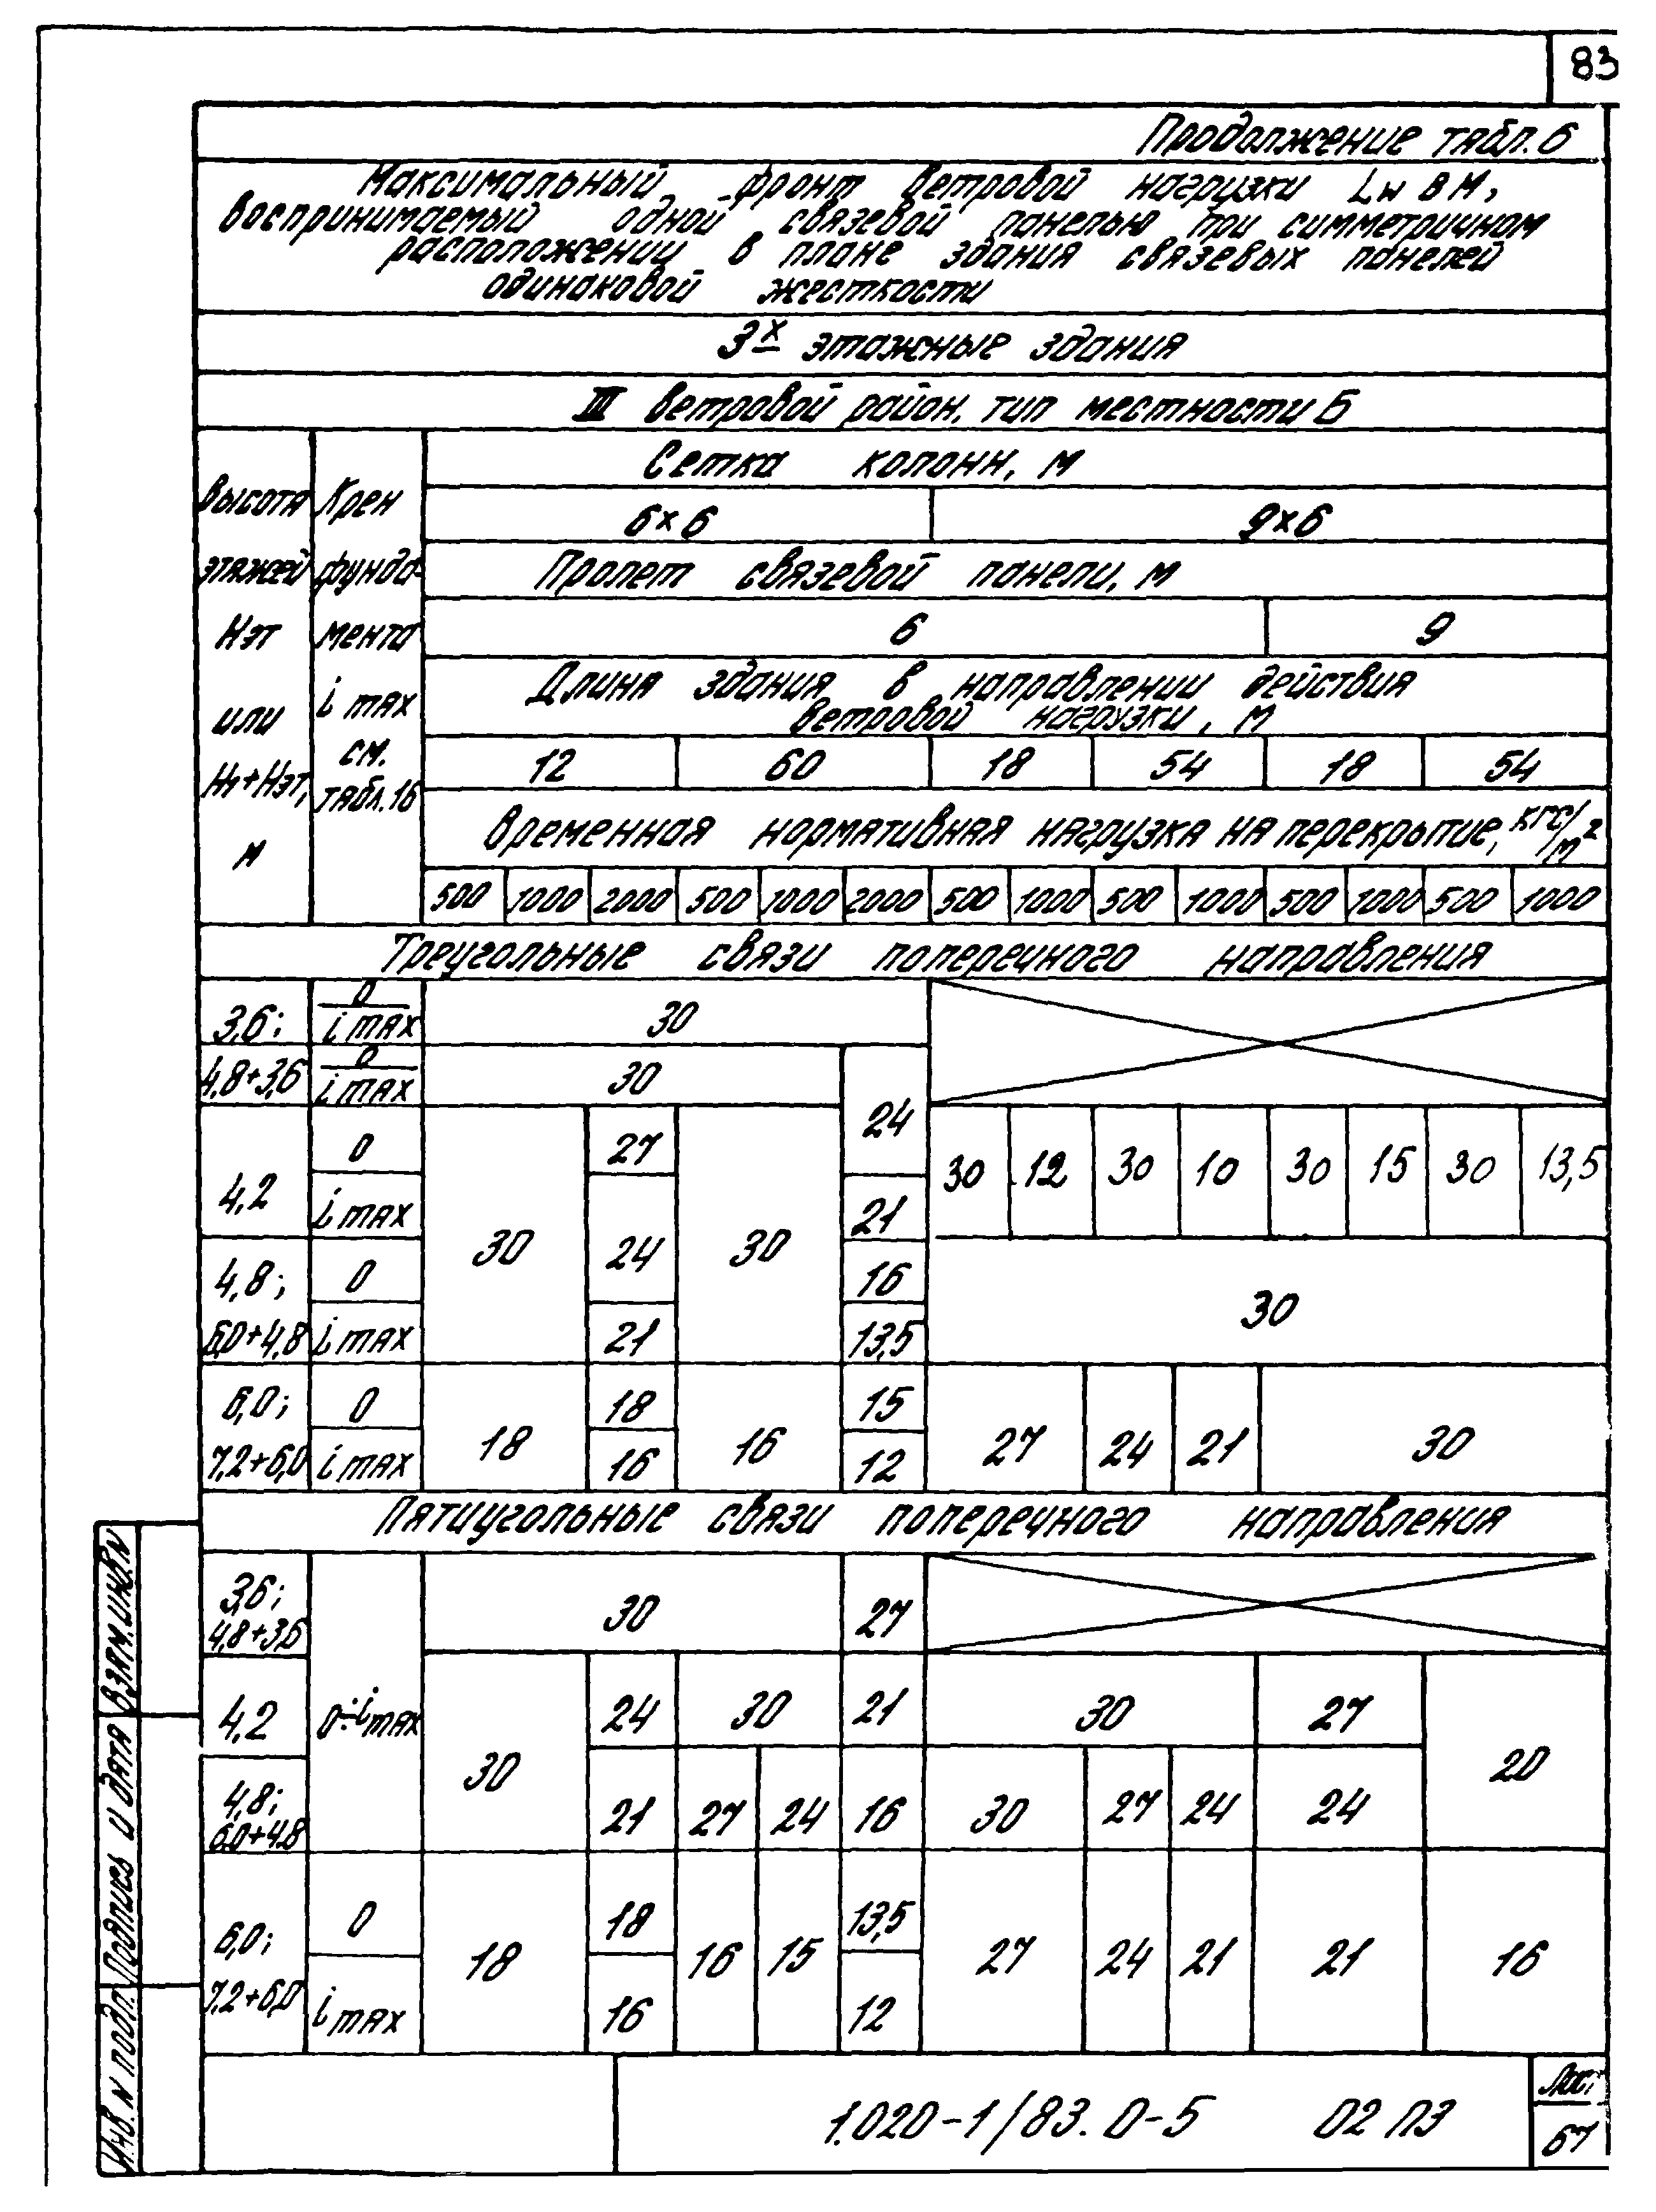 83
Продолжение табл. 6
Максимальный фронт ветровой нагрузки Lw в м,
воспринимаемый одной связевой панелью при симметричном
расположении в плане здания связевых панелей
одинаковой жесткости
3х этажные здания
III ветровой район, тип местности Б
Высота этажей Нэт или Н1+Нэт, м
Крен фундамента i max см. табл. 16
Сетка колонн, м
6×6 9×6
Пролет связевой панели, м
6 9
Длина здания в направлении действия
ветровой нагрузки, м
12 60 18 54 18 54
Временная нормативная нагрузка на перекрытие, кгс/м²
500 1000 2000 500 1000 2000 500 1000 500 1000 500 1000 500 1000
Треугольные связи поперечного направления
3,6; 0 / i max 30
4,8+3,6 0 / i max 30 24
4,2 0 27 30 12 30 10 30 15 30 13,5
i max 30 24 30 21
4,8; 0 16 30
6,0+4,8 i max 21 13,5
6,0; 0 18 18 16 15 27 24 21 30
7,2+6,0 i max 16 12
Пятиугольные связи поперечного направления
3,6; 4,8+3,6 0÷i max 30 27
4,2 30 24 30 21 30 27 20
4,8; 6,0+4,8 21 27 24 16 30 27 24 24
6,0; 0 18 18 16 15 13,5 27 24 21 21 16
7,2+6,0 i max 16 12
Взам. инв. N
Подпись и дата
Инв. N подл.
1.020-1/83. 0-5 02 ПЗ
Лист
67